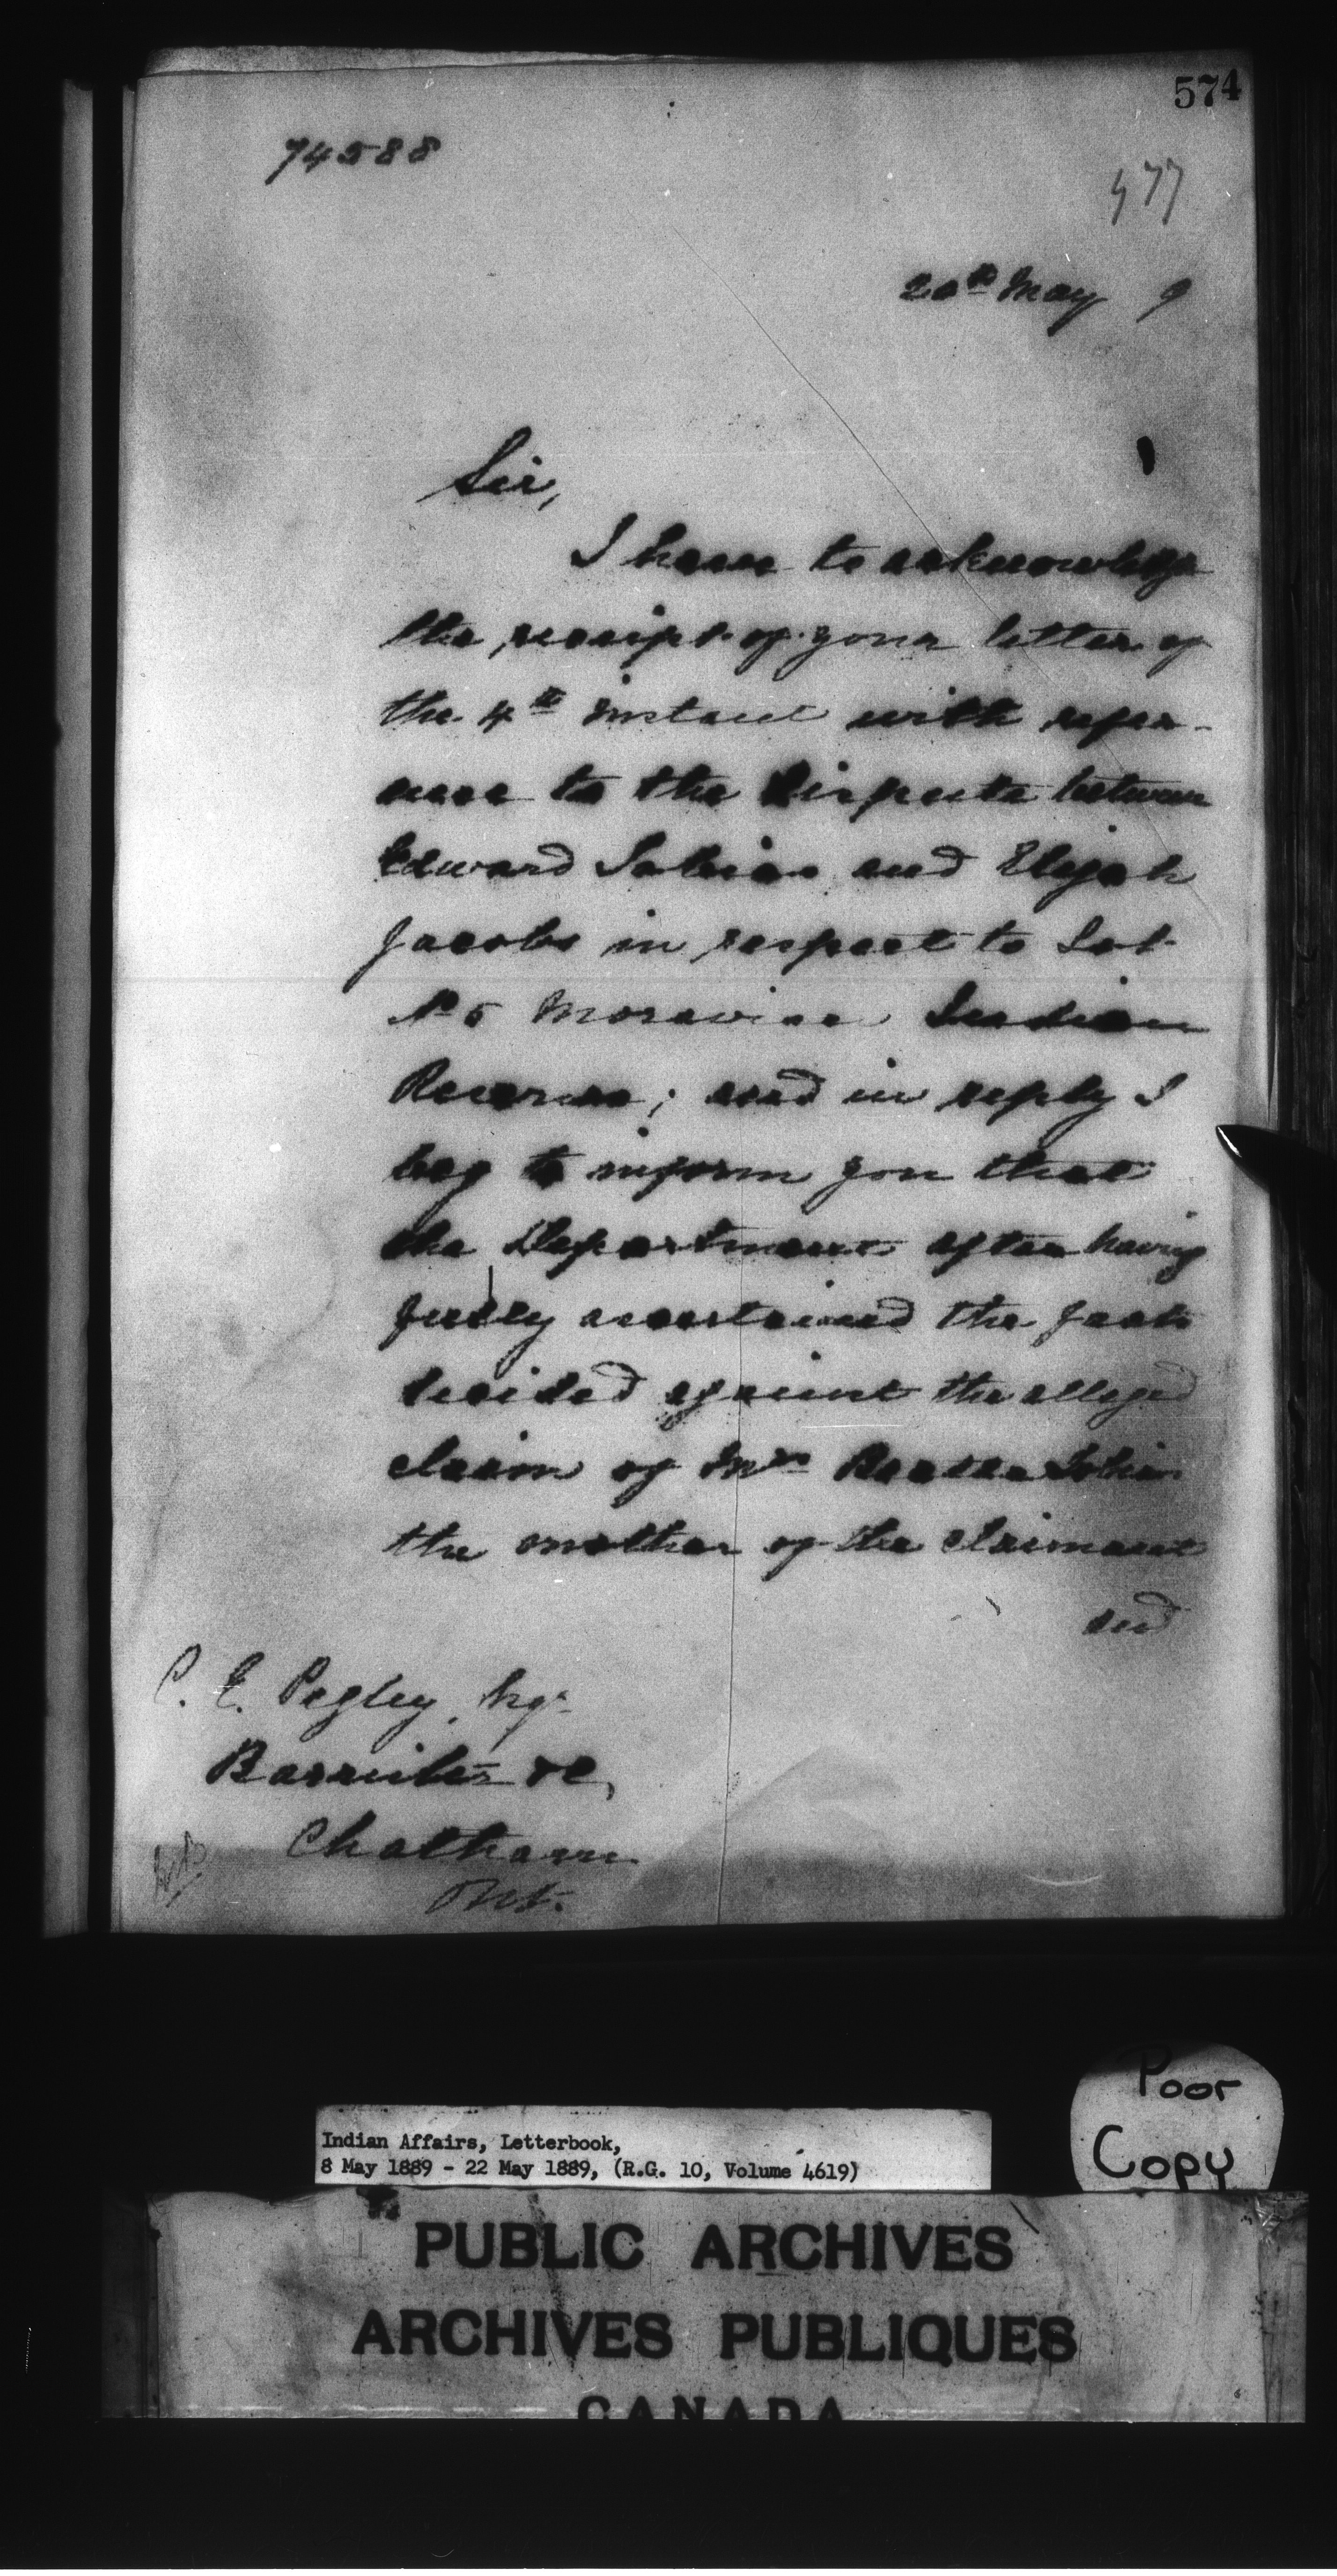 574
74588
577
20th May 9
Sir,
I have to acknowledge
the receipt of your letter of
the 4th instant with refer-
ence to the dispute between
Edward Tobias and Elijah
Jacobs in respect to Lot
No 5 Moravian Indian
Reserve; and in reply I
beg to inform you that
the Department after having
fully ascertained the facts
decided against the alleged
claim of Mrs Tobias
the mother of the claimant
and
C. E. Pegley, Esq.
Barrister &c,
Chatham
Ont.
Poor
Copy
Indian Affairs, Letterbook,
8 May 1889 - 22 May 1889, (R.G. 10, Volume 4619)
PUBLIC ARCHIVES
ARCHIVES PUBLIQUES
CANADA